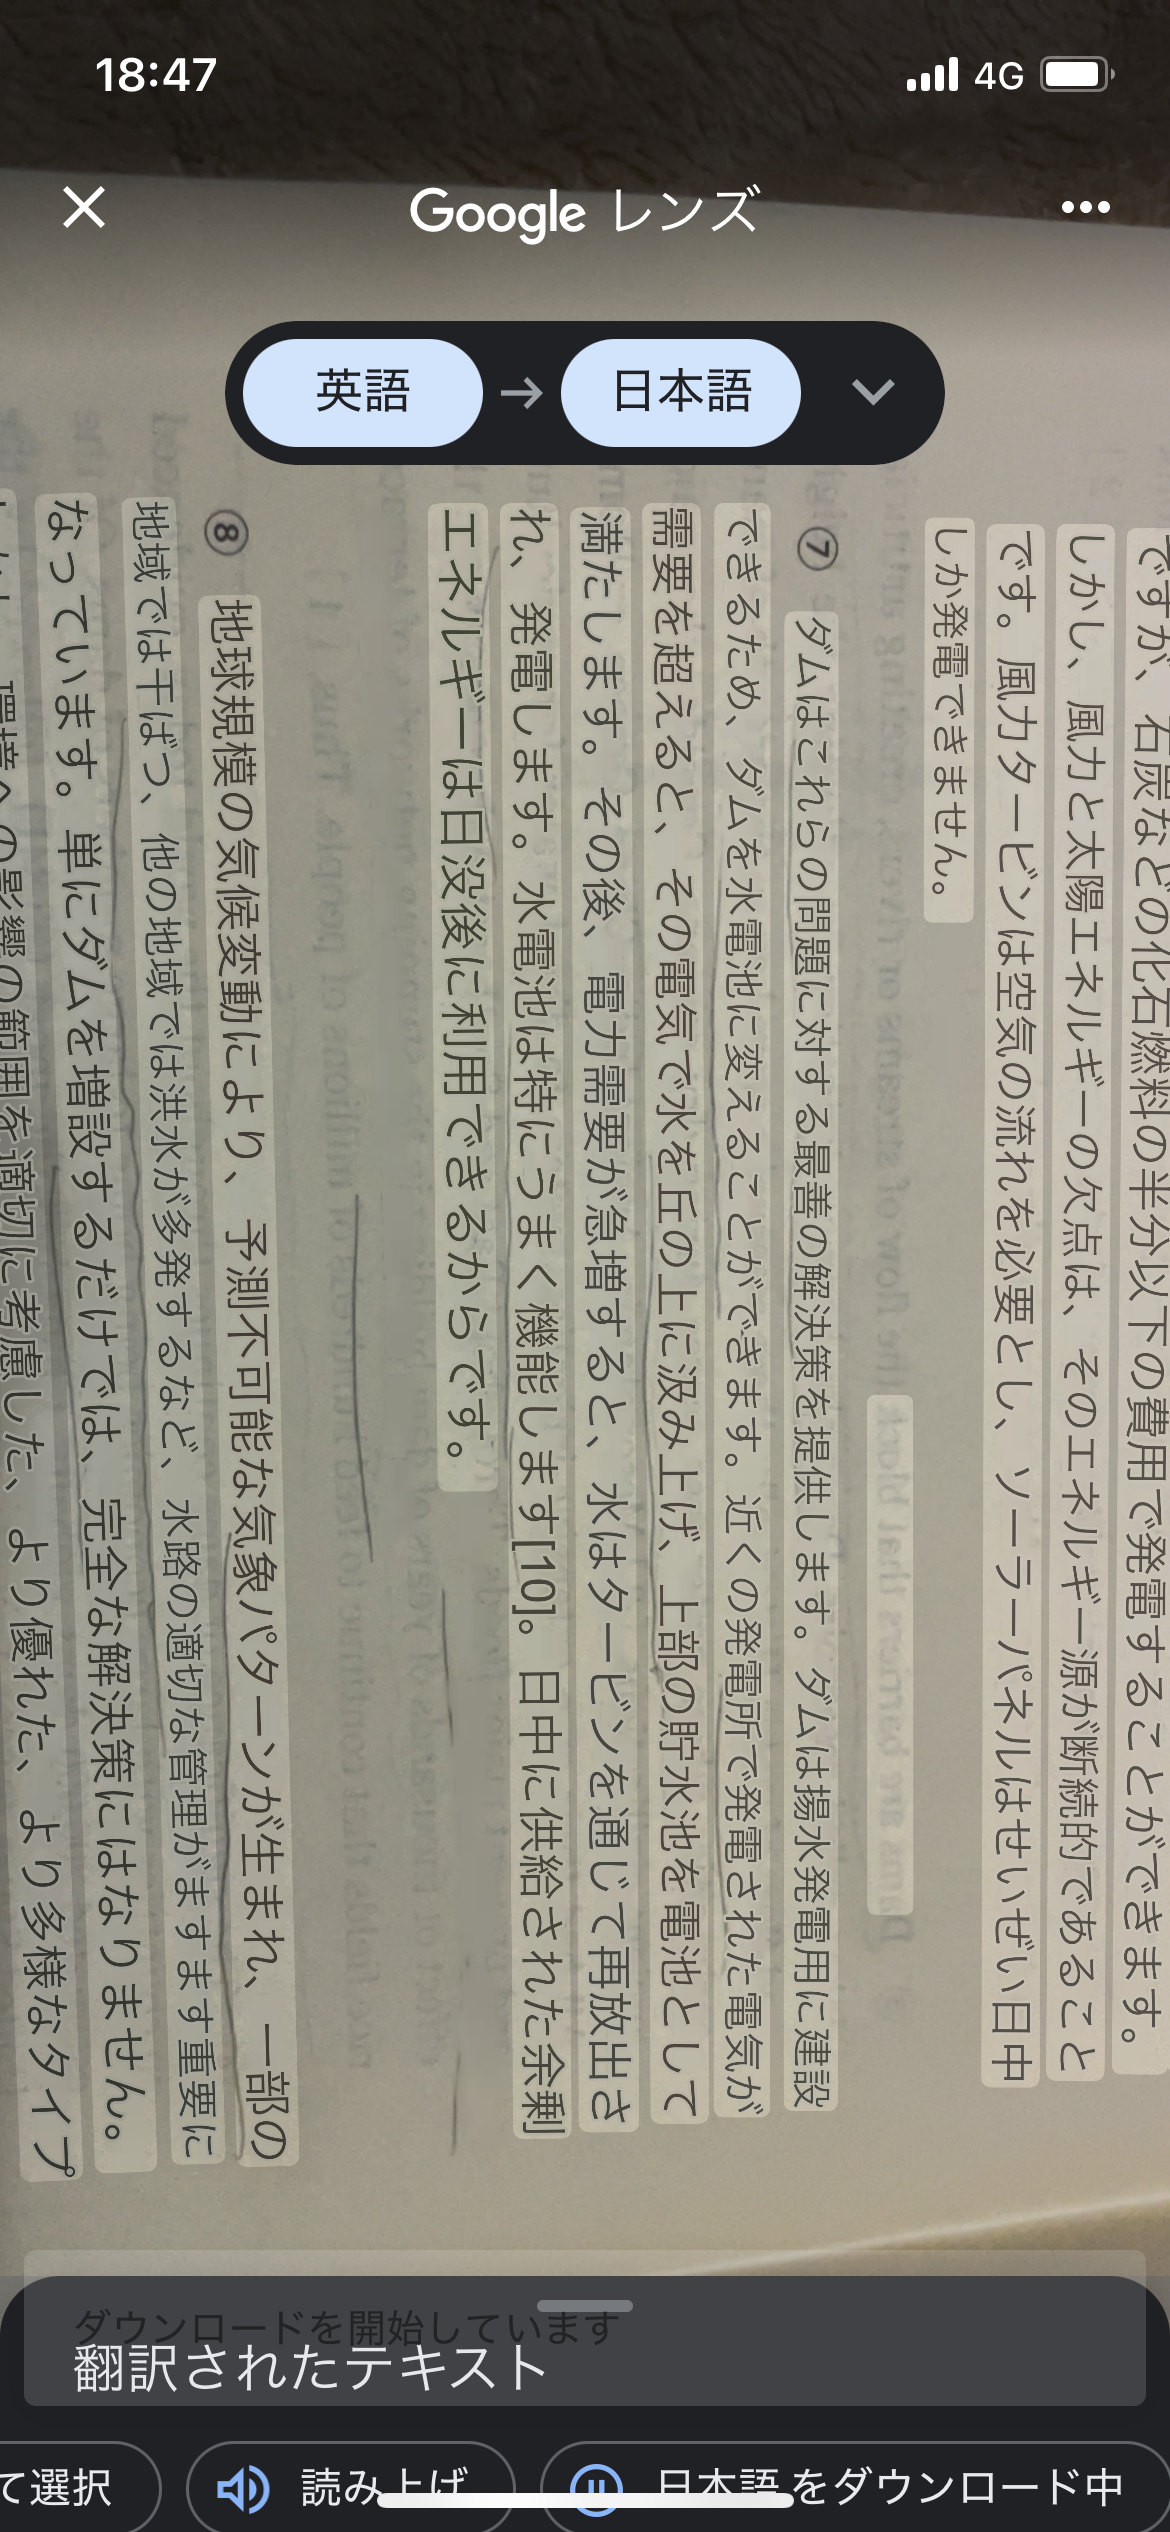 18:47
4G
Google レンズ
英語 → 日本語
ですが、石炭などの化石燃料の半分以下の費用で発電することができます。
しかし、風力と太陽エネルギーの欠点は、そのエネルギー源が断続的であること
です。風力タービンは空気の流れを必要とし、ソーラーパネルはせいぜい日中
しか発電できません。
⑦ ダムはこれらの問題に対する最善の解決策を提供します。ダムは揚水発電用に建設
できるため、ダムを水電池に変えることができます。近くの発電所で発電された電気が
需要を超えると、その電気で水を丘の上に汲み上げ、上部の貯水池を電池として
満たします。その後、電力需要が急増すると、水はタービンを通じて再放出さ
れ、発電します。水電池は特にうまく機能します[10]。日中に供給された余剰
エネルギーは日没後に利用できるからです。
⑧ 地球規模の気候変動により、予測不可能な気象パターンが生まれ、一部の
地域では干ばつ、他の地域では洪水が多発するなど、水路の適切な管理がますます重要に
なっています。単にダムを増設するだけでは、完全な解決策にはなりません。
環境への影響の範囲を適切に考慮した、より優れた、より多様なタイプ
ダウンロードを開始しています
翻訳されたテキスト
て選択
読み上げ
日本語 をダウンロード中